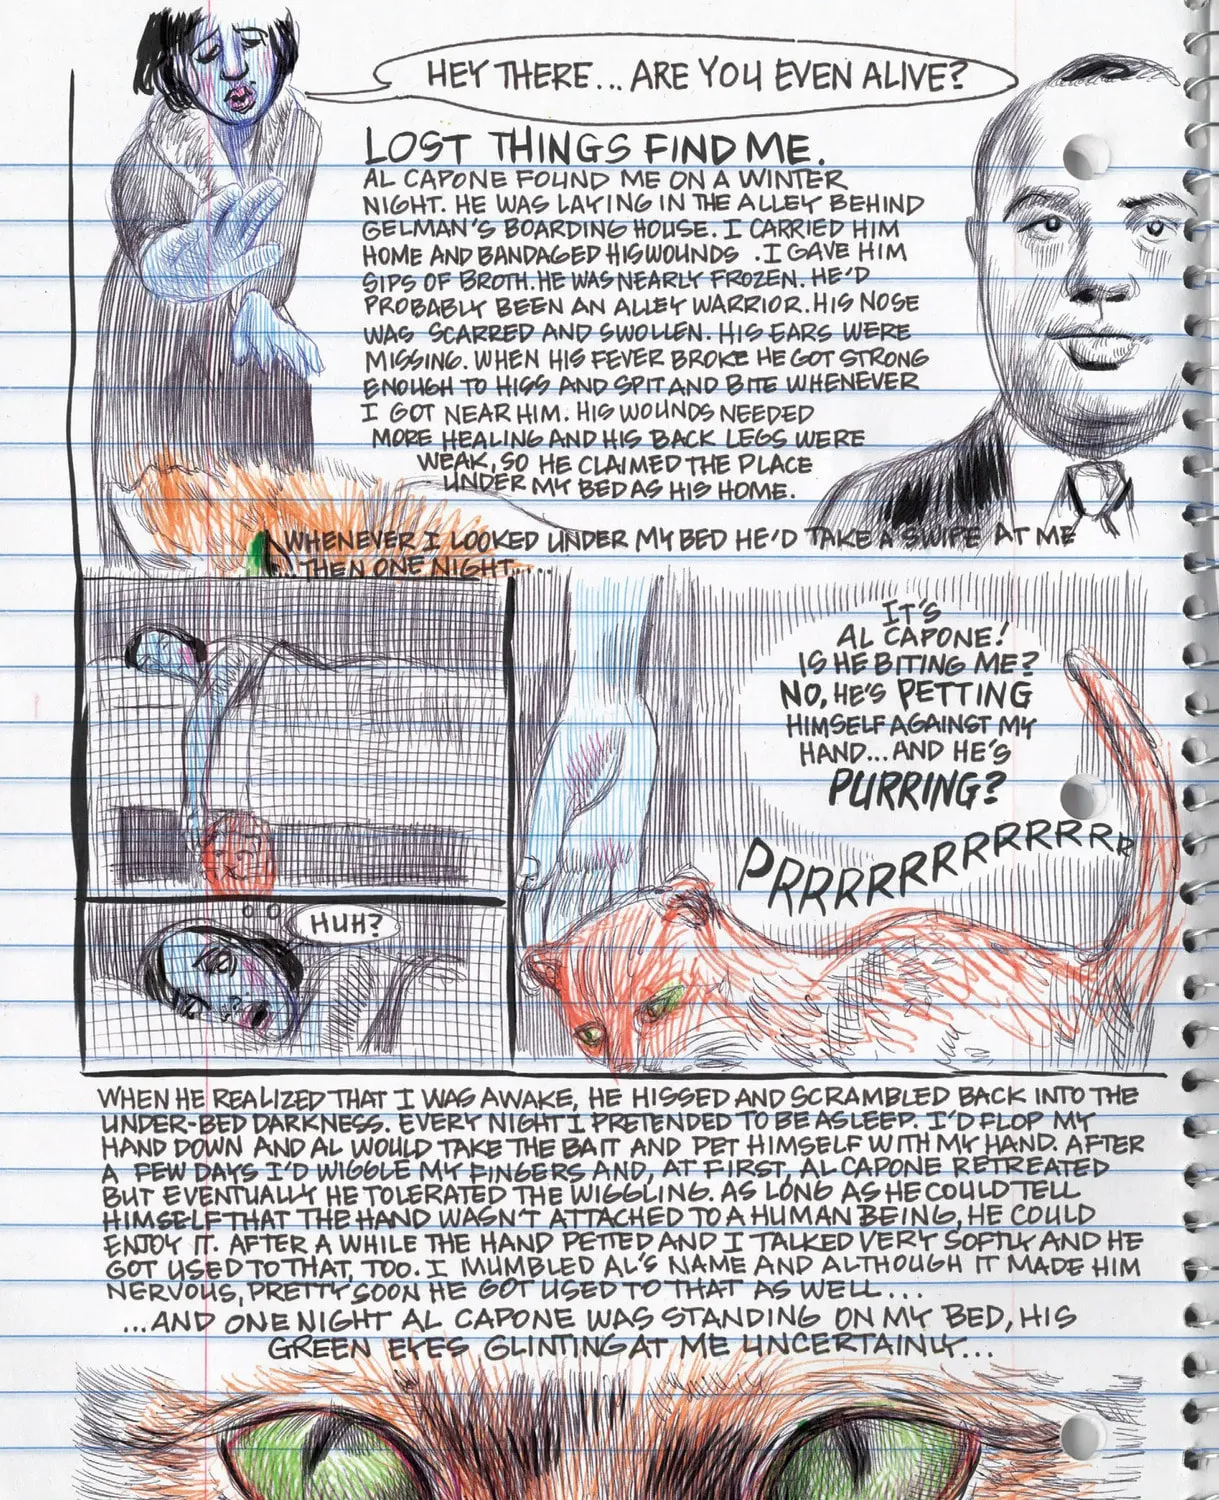 HEY THERE... ARE YOU EVEN ALIVE?
LOST THINGS FIND ME.
AL CAPONE FOUND ME ON A WINTER
NIGHT. HE WAS LAYING IN THE ALLEY BEHIND
GELMAN'S BOARDING HOUSE. I CARRIED HIM
HOME AND BANDAGED HIS WOUNDS. I GAVE HIM
SIPS OF BROTH. HE WAS NEARLY FROZEN. HE'D
PROBABLY BEEN AN ALLEY WARRIOR. HIS NOSE
WAS SCARRED AND SWOLLEN. HIS EARS WERE
MISSING. WHEN HIS FEVER BROKE HE GOT STRONG
ENOUGH TO HISS AND SPIT AND BITE WHENEVER
I GOT NEAR HIM. HIS WOUNDS NEEDED
MORE HEALING AND HIS BACK LEGS WERE
WEAK, SO HE CLAIMED THE PLACE
UNDER MY BED AS HIS HOME.
WHENEVER I LOOKED UNDER MY BED HE'D TAKE A SWIPE AT ME
...THEN ONE NIGHT.....
IT'S
AL CAPONE!
IS HE BITING ME?
NO, HE'S PETTING
HIMSELF AGAINST MY
HAND... AND HE'S
PURRING?
PRRRRRRRRRRRRR
HUH?
WHEN HE REALIZED THAT I WAS AWAKE, HE HISSED AND SCRAMBLED BACK INTO THE
UNDER-BED DARKNESS. EVERY NIGHT I PRETENDED TO BE ASLEEP. I'D FLOP MY
HAND DOWN AND AL WOULD TAKE THE BAIT AND PET HIMSELF WITH MY HAND. AFTER
A FEW DAYS I'D WIGGLE MY FINGERS AND, AT FIRST, AL CAPONE RETREATED
BUT EVENTUALLY HE TOLERATED THE WIGGLING. AS LONG AS HE COULD TELL
HIMSELF THAT THE HAND WASN'T ATTACHED TO A HUMAN BEING, HE COULD
ENJOY IT. AFTER A WHILE THE HAND PETTED AND I TALKED VERY SOFTLY AND HE
GOT USED TO THAT, TOO. I MUMBLED AL'S NAME AND ALTHOUGH IT MADE HIM
NERVOUS, PRETTY SOON HE GOT USED TO THAT AS WELL...
...AND ONE NIGHT AL CAPONE WAS STANDING ON MY BED, HIS
GREEN EYES GLINTING AT ME UNCERTAINLY...